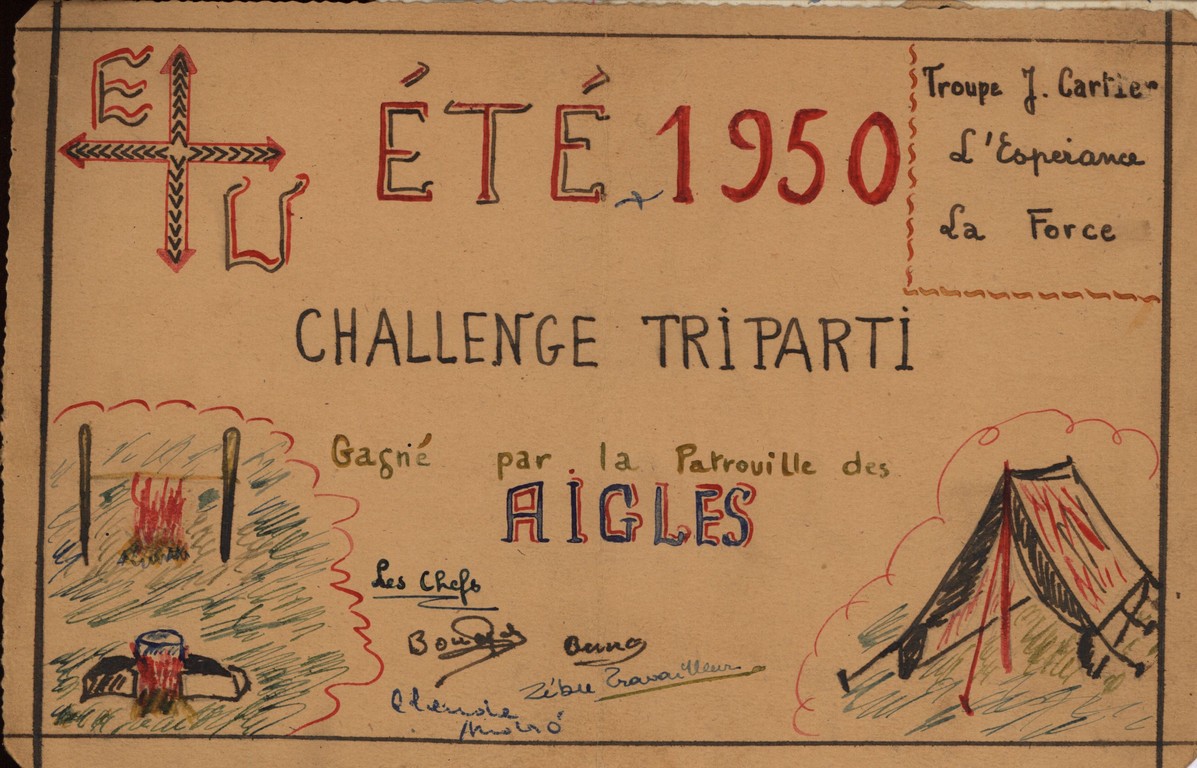 E
U
ÉTÉ 1950
Troupe J. Cartier
L'Esperance
La Force
CHALLENGE TRIPARTI
Gagné par la Patrouille des
AIGLES
Les Chefs
Zébu Travailleur